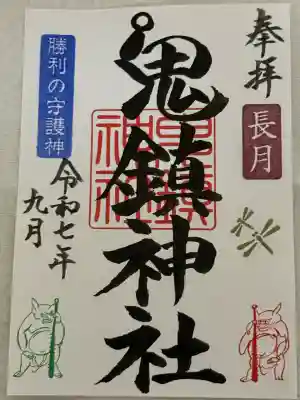 奉拝
長月
鬼鎮神社
勝利の守護神
令和七年
九月